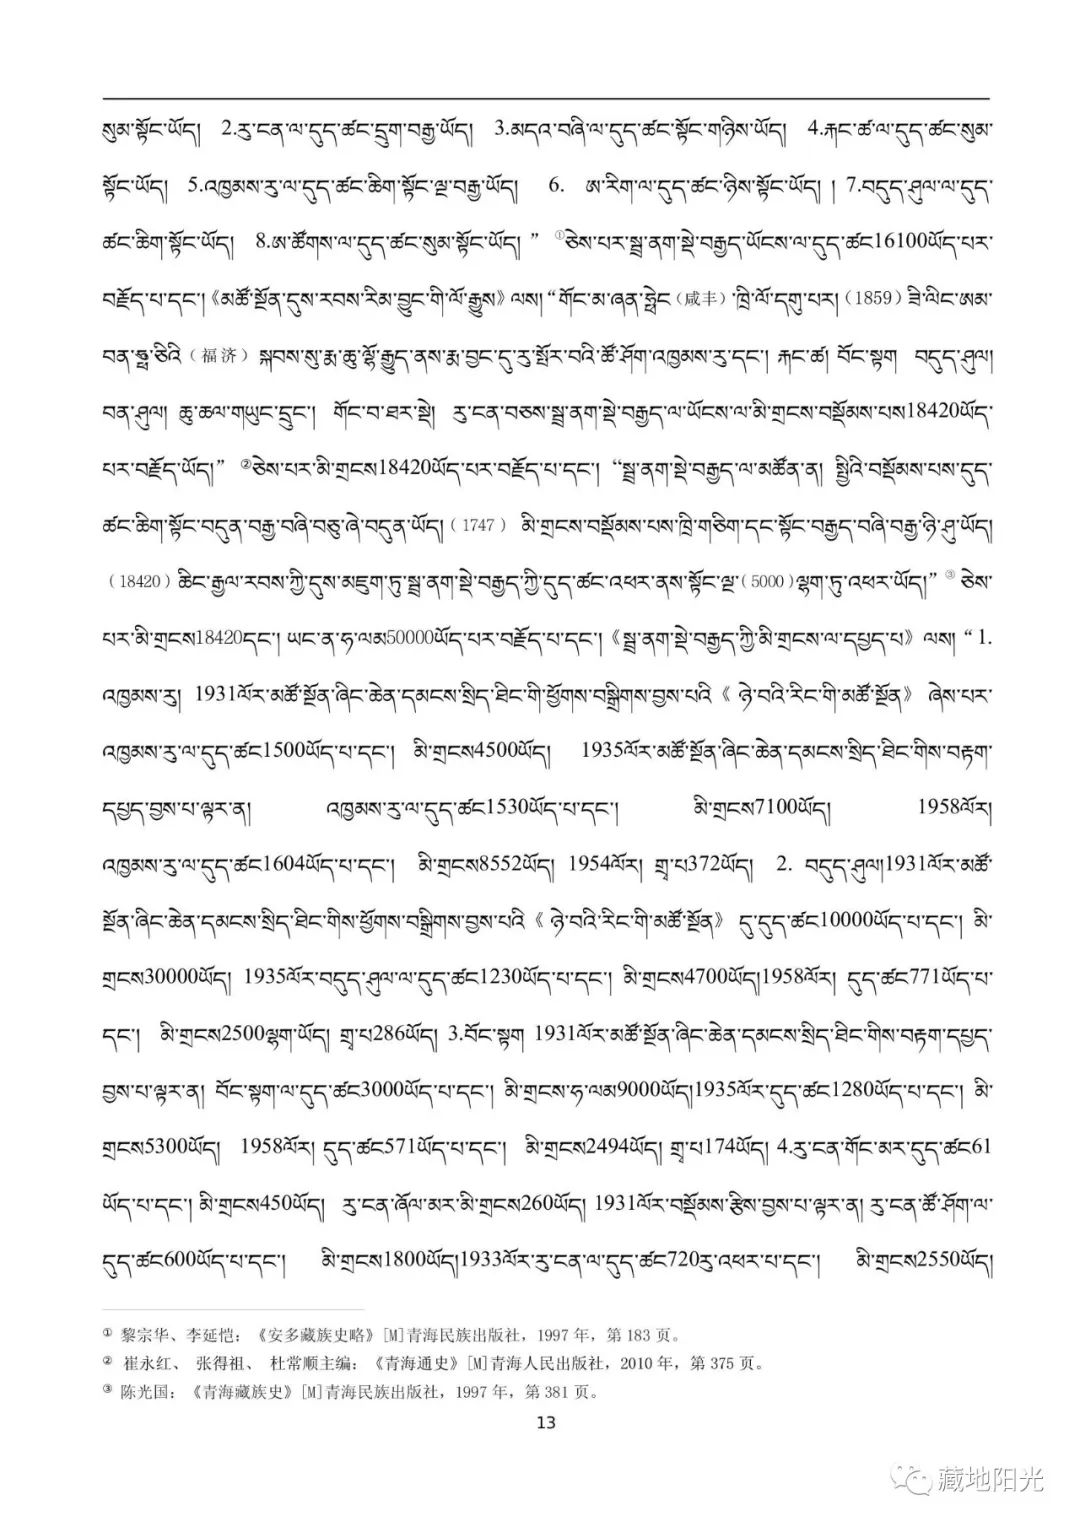 སུམ་སྟོང་ཡོད། 2.རུ་ངན་ལ་དུད་ཚང་དྲུག་བརྒྱ་ཡོད། 3.མདའ་བཞི་ལ་དུད་ཚང་སྟོང་གཉིས་ཡོད། 4.རྐང་ཚ་ལ་དུད་ཚང་སུམ་
སྟོང་ཡོད། 5.འཁྱམས་རུ་ལ་དུད་ཚང་ཆིག་སྟོང་ལྔ་བརྒྱ་ཡོད། 6. ཨ་རིག་ལ་དུད་ཚང་ཉིས་སྟོང་ཡོད། ། 7.བདུད་ཤུལ་ལ་དུད་
ཚང་ཆིག་སྟོང་ཡོད། 8.ཨ་ཚོགས་ལ་དུད་ཚང་སུམ་སྟོང་ཡོད། ” ①ཅེས་པར་སྦྲ་ནག་སྡེ་བརྒྱད་ཡོངས་ལ་དུད་ཚང16100ཡོད་པར་
བརྗོད་པ་དང་། 《མཚོ་སྔོན་དུས་རབས་རིམ་བྱུང་གི་ལོ་རྒྱུས》 ལས། “གོང་མ་ཞན་ཧྥེང（咸丰）ཁྲི་ལོ་དགུ་པར། （1859） ཟི་ལིང་ཨམ་
བན་ཧྥུ་ཅིའི（福济） སྐབས་སུ་རྨ་ཆུ་ལྷོ་རྒྱུད་ནས་རྨ་བྱང་དུ་རུ་སྤོར་བའི་ཚོ་ཤོག་འཁྱམས་རུ་དང་། རྐང་ཚ། བོང་སྟག བདུད་ཤུལ།
བན་ཤུལ། ཆུ་ཚལ་གཡུང་དྲུང་། གོང་བ་ཐར་སྡེ། རུ་ངན་བཅས་སྦྲ་ནག་སྡེ་བརྒྱད་ལ་ཡོངས་ལ་མི་གྲངས་བསྡོམས་པས18420ཡོད་
པར་བརྗོད་ཡོད།” ②ཅེས་པར་མི་གྲངས18420ཡོད་པར་བརྗོད་པ་དང་། “སྦྲ་ནག་སྡེ་བརྒྱད་ལ་མཚོན་ན། སྤྱིའི་བསྡོམས་པས་དུད་
ཚང་ཆིག་སྟོང་བདུན་བརྒྱ་བཞི་བཅུ་ཞེ་བདུན་ཡོད།（1747） མི་གྲངས་བསྡོམས་པས་ཁྲི་གཅིག་དང་སྟོང་བརྒྱད་བཞི་བརྒྱ་ཉི་ཤུ་ཡོད།
（18420）ཆིང་རྒྱལ་རབས་ཀྱི་དུས་མཇུག་ཏུ་སྦྲ་ནག་སྡེ་བརྒྱད་ཀྱི་དུད་ཚང་འཕར་ནས་སྟོང་ལྔ（5000）ལྷག་ཏུ་འཕར་ཡོད།”③ ཅེས་
པར་མི་གྲངས18420དང་། ཡང་ན་ཧ་ལམ50000ཡོད་པར་བརྗོད་པ་དང་། 《སྦྲ་ནག་སྡེ་བརྒྱད་ཀྱི་མི་གྲངས་ལ་དཔྱད་པ》 ལས། “ 1.
འཁྱམས་རུ། 1931ལོར་མཚོ་སྔོན་ཞིང་ཆེན་དམངས་སྲིད་ཐིང་གི་ཕྱོགས་བསྒྲིགས་བྱས་པའི《 ཉེ་བའི་རིང་གི་མཚོ་སྔོན》 ཞེས་པར་
འཁྱམས་རུ་ལ་དུད་ཚང1500ཡོད་པ་དང་། མི་གྲངས4500ཡོད། 1935ལོར་མཚོ་སྔོན་ཞིང་ཆེན་དམངས་སྲིད་ཐིང་གིས་བརྟག་
དཔྱད་བྱས་པ་ལྟར་ན། འཁྱམས་རུ་ལ་དུད་ཚང1530ཡོད་པ་དང་། མི་གྲངས7100ཡོད། 1958ལོར།
འཁྱམས་རུ་ལ་དུད་ཚང1604ཡོད་པ་དང་། མི་གྲངས8552ཡོད། 1954ལོར། གྲྭ་པ372ཡོད། 2. བདུད་ཤུལ།1931ལོར་མཚོ་
སྔོན་ཞིང་ཆེན་དམངས་སྲིད་ཐིང་གིས་ཕྱོགས་བསྒྲིགས་བྱས་པའི《 ཉེ་བའི་རིང་གི་མཚོ་སྔོན》 དུ་དུད་ཚང10000ཡོད་པ་དང་། མི་
གྲངས30000ཡོད། 1935ལོར་བདུད་ཤུལ་ལ་དུད་ཚང1230ཡོད་པ་དང་། མི་གྲངས4700ཡོད།1958ལོར། དུད་ཚང771ཡོད་པ་
དང་། མི་གྲངས2500ལྷག་ཡོད། གྲྭ་པ286ཡོད། 3.བོང་སྟག 1931ལོར་མཚོ་སྔོན་ཞིང་ཆེན་དམངས་སྲིད་ཐིང་གིས་བརྟག་དཔྱད་
བྱས་པ་ལྟར་ན། བོང་སྟག་ལ་དུད་ཚང3000ཡོད་པ་དང་། མི་གྲངས་ཧ་ལམ9000ཡོད།1935ལོར་དུད་ཚང1280ཡོད་པ་དང་། མི་
གྲངས5300ཡོད། 1958ལོར། དུད་ཚང571ཡོད་པ་དང་། མི་གྲངས2494ཡོད། གྲྭ་པ174ཡོད། 4.རུ་ངན་གོང་མར་དུད་ཚང61
ཡོད་པ་དང་། མི་གྲངས450ཡོད། རུ་ངན་ཞོལ་མར་མི་གྲངས260ཡོད། 1931ལོར་བསྡོམས་རྩིས་བྱས་པ་ལྟར་ན། རུ་ངན་ཚོ་ཤོག་ལ་
དུད་ཚང600ཡོད་པ་དང་། མི་གྲངས1800ཡོད།1933ལོར་རུ་ངན་ལ་དུད་ཚང720རུ་འཕར་པ་དང་། མི་གྲངས2550ཡོད།
① 黎宗华、李延恺：《安多藏族史略》[M]青海民族出版社，1997 年，第 183 页。
② 崔永红、 张得祖、 杜常顺主编：《青海通史》[M]青海人民出版社，2010 年，第 375 页。
③ 陈光国：《青海藏族史》[M]青海民族出版社，1997 年，第 381 页。
13
藏地阳光